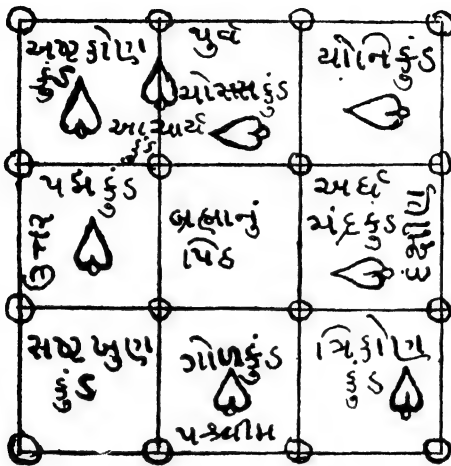 અષ્ટકોણ
કુંડ
પુર્વ
ચોરસકુંડ
આચાર્ય
કુંડ
યોનિકુંડ
ઉત્તર
પદ્મકુંડ
બ્રહ્માનું
પિઠ
અર્ધ
ચંદ્રકુંડ
દક્ષીણ
સષ્ટખુણ
કુંડ
ગોળકુંડ
પશ્ચીમ
ત્રિકોણ
કુંડ